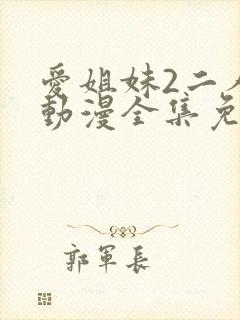 愛姐妹2二人
動漫全集免
郭軍長